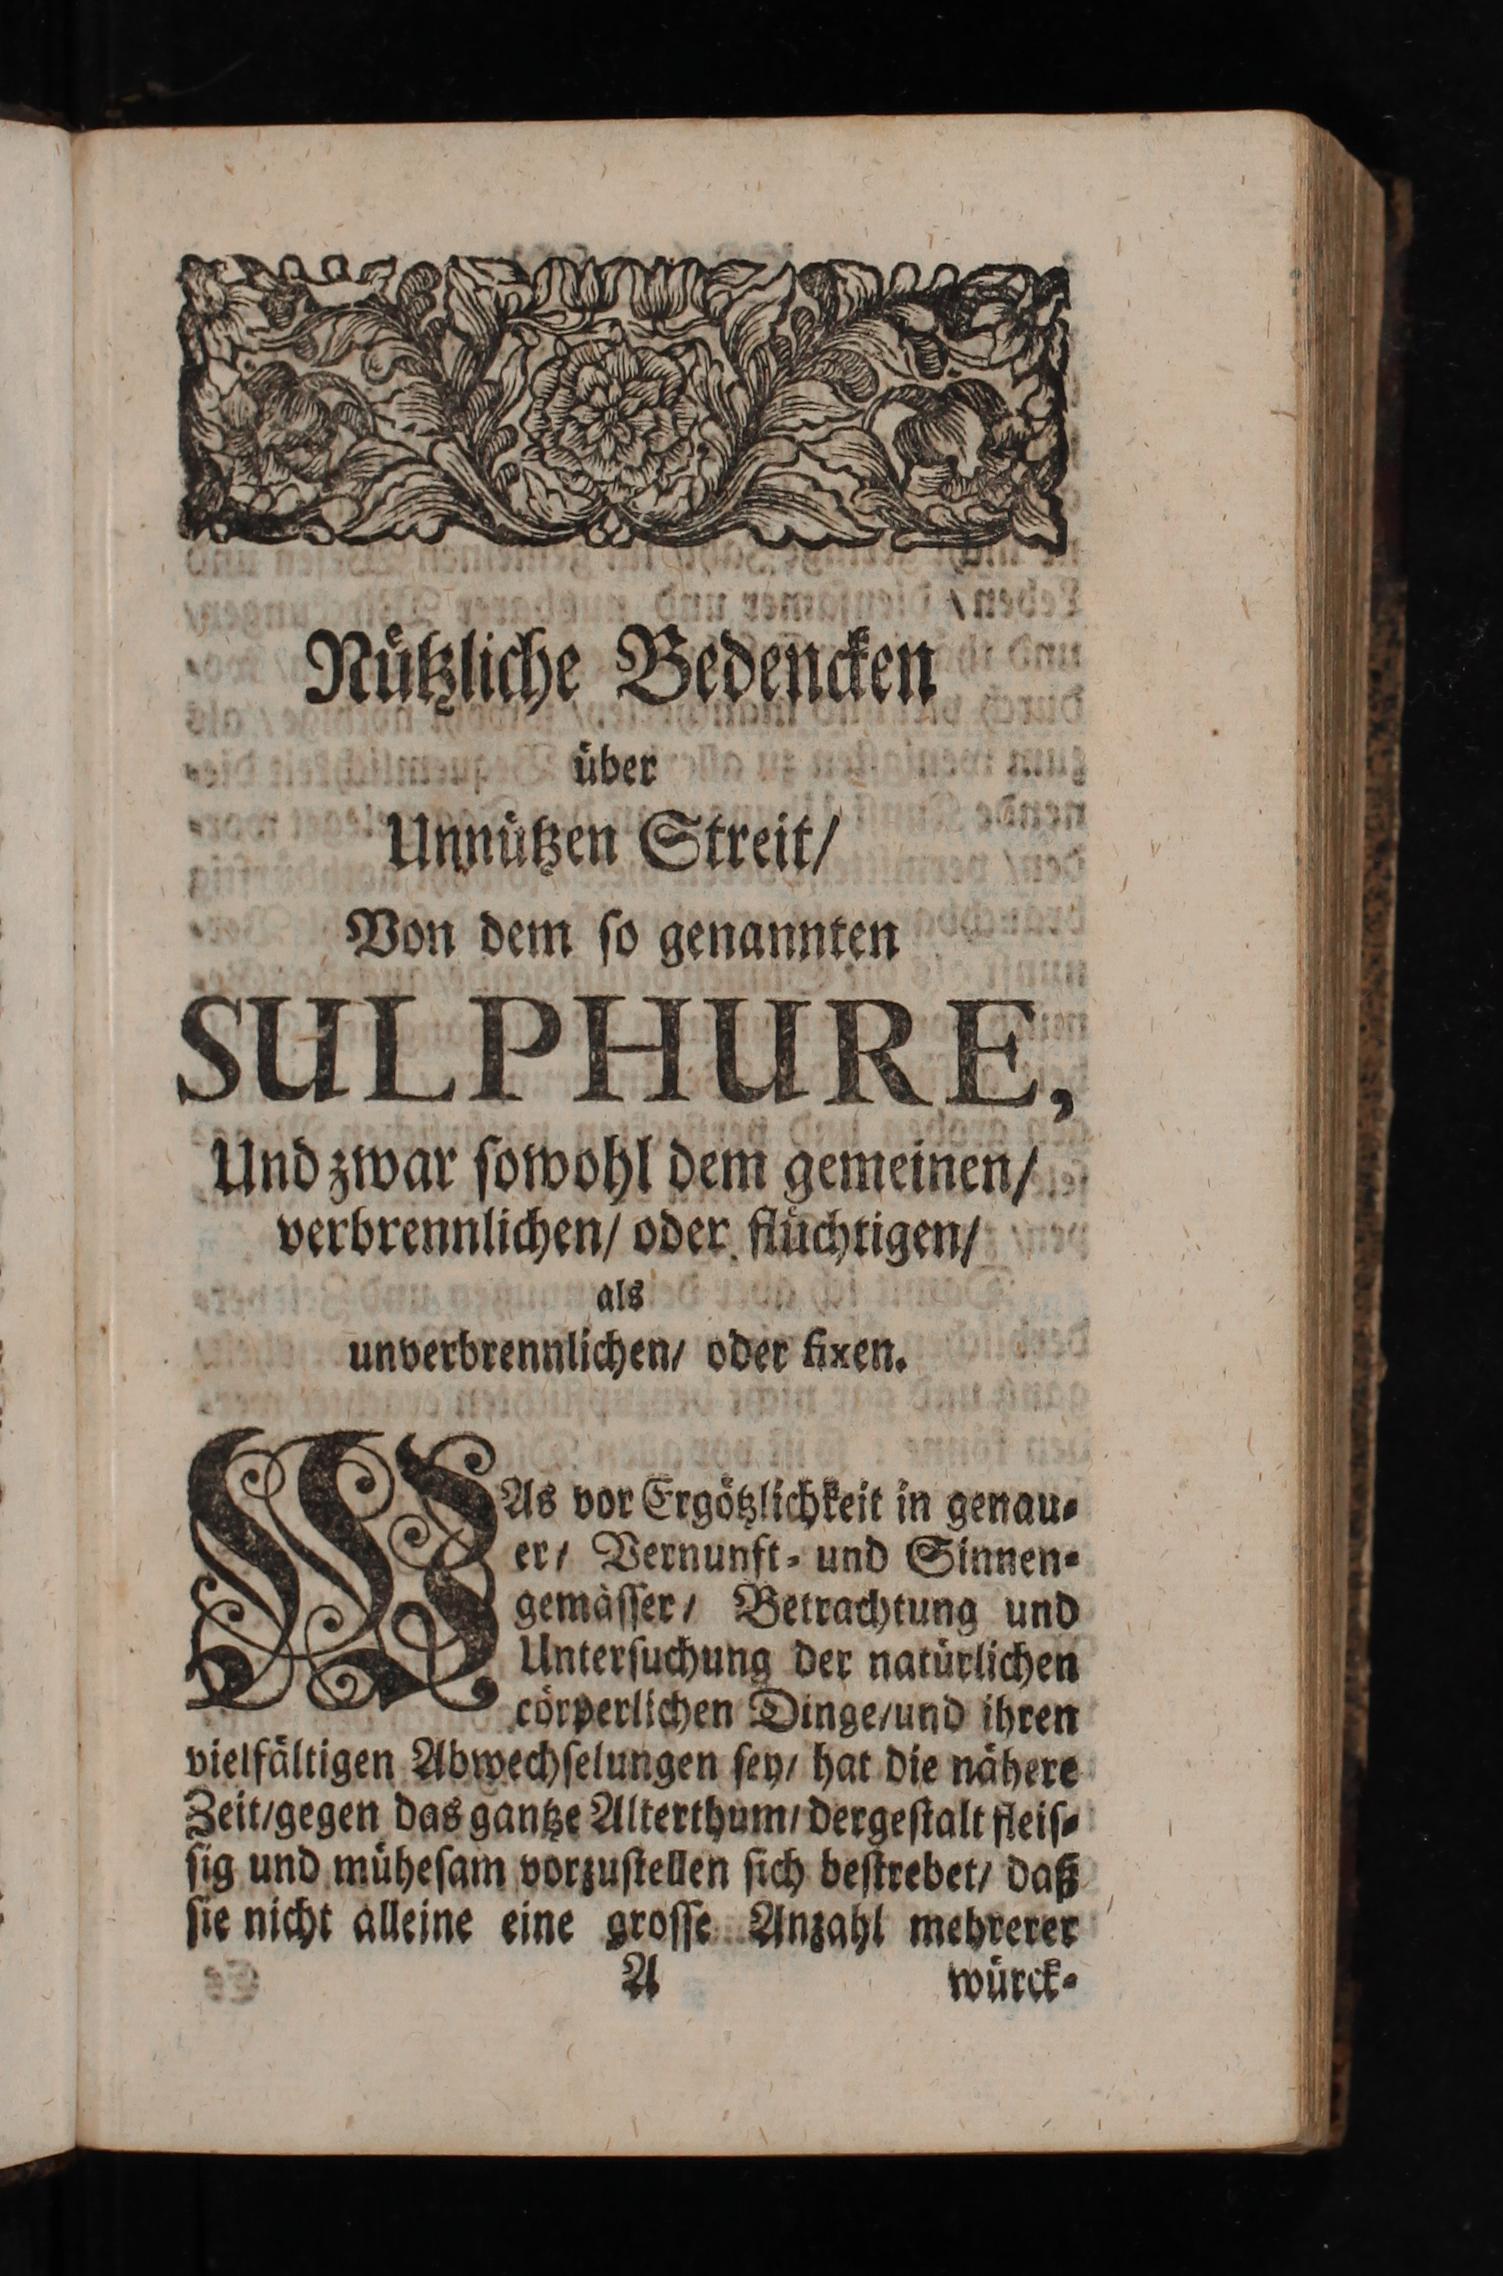 Nützliche Bedencken
über
Unnützen Streit/
Von dem ſo genannten
SULPHURE,
Und zwar ſowohl dem gemeinen/
verbrennlichen/ oder flüchtigen/
als
unverbrennlichen/ oder fixen.
WAs vor Ergötzlichkeit in genau-
er/ Vernunft- und Sinnen-
gemäſſer/ Betrachtung und
Unterſuchung der natürlichen
cörperlichen Dinge/und ihren
vielfältigen Abwechſelungen ſey/ hat die nähere
Zeit/gegen das gantze Alterthum/ dergeſtalt fleiſ-
ſig und müheſam vorzuſtellen ſich beſtrebet/ daß
ſie nicht alleine eine groſſe Anzahl mehrerer
A würck-